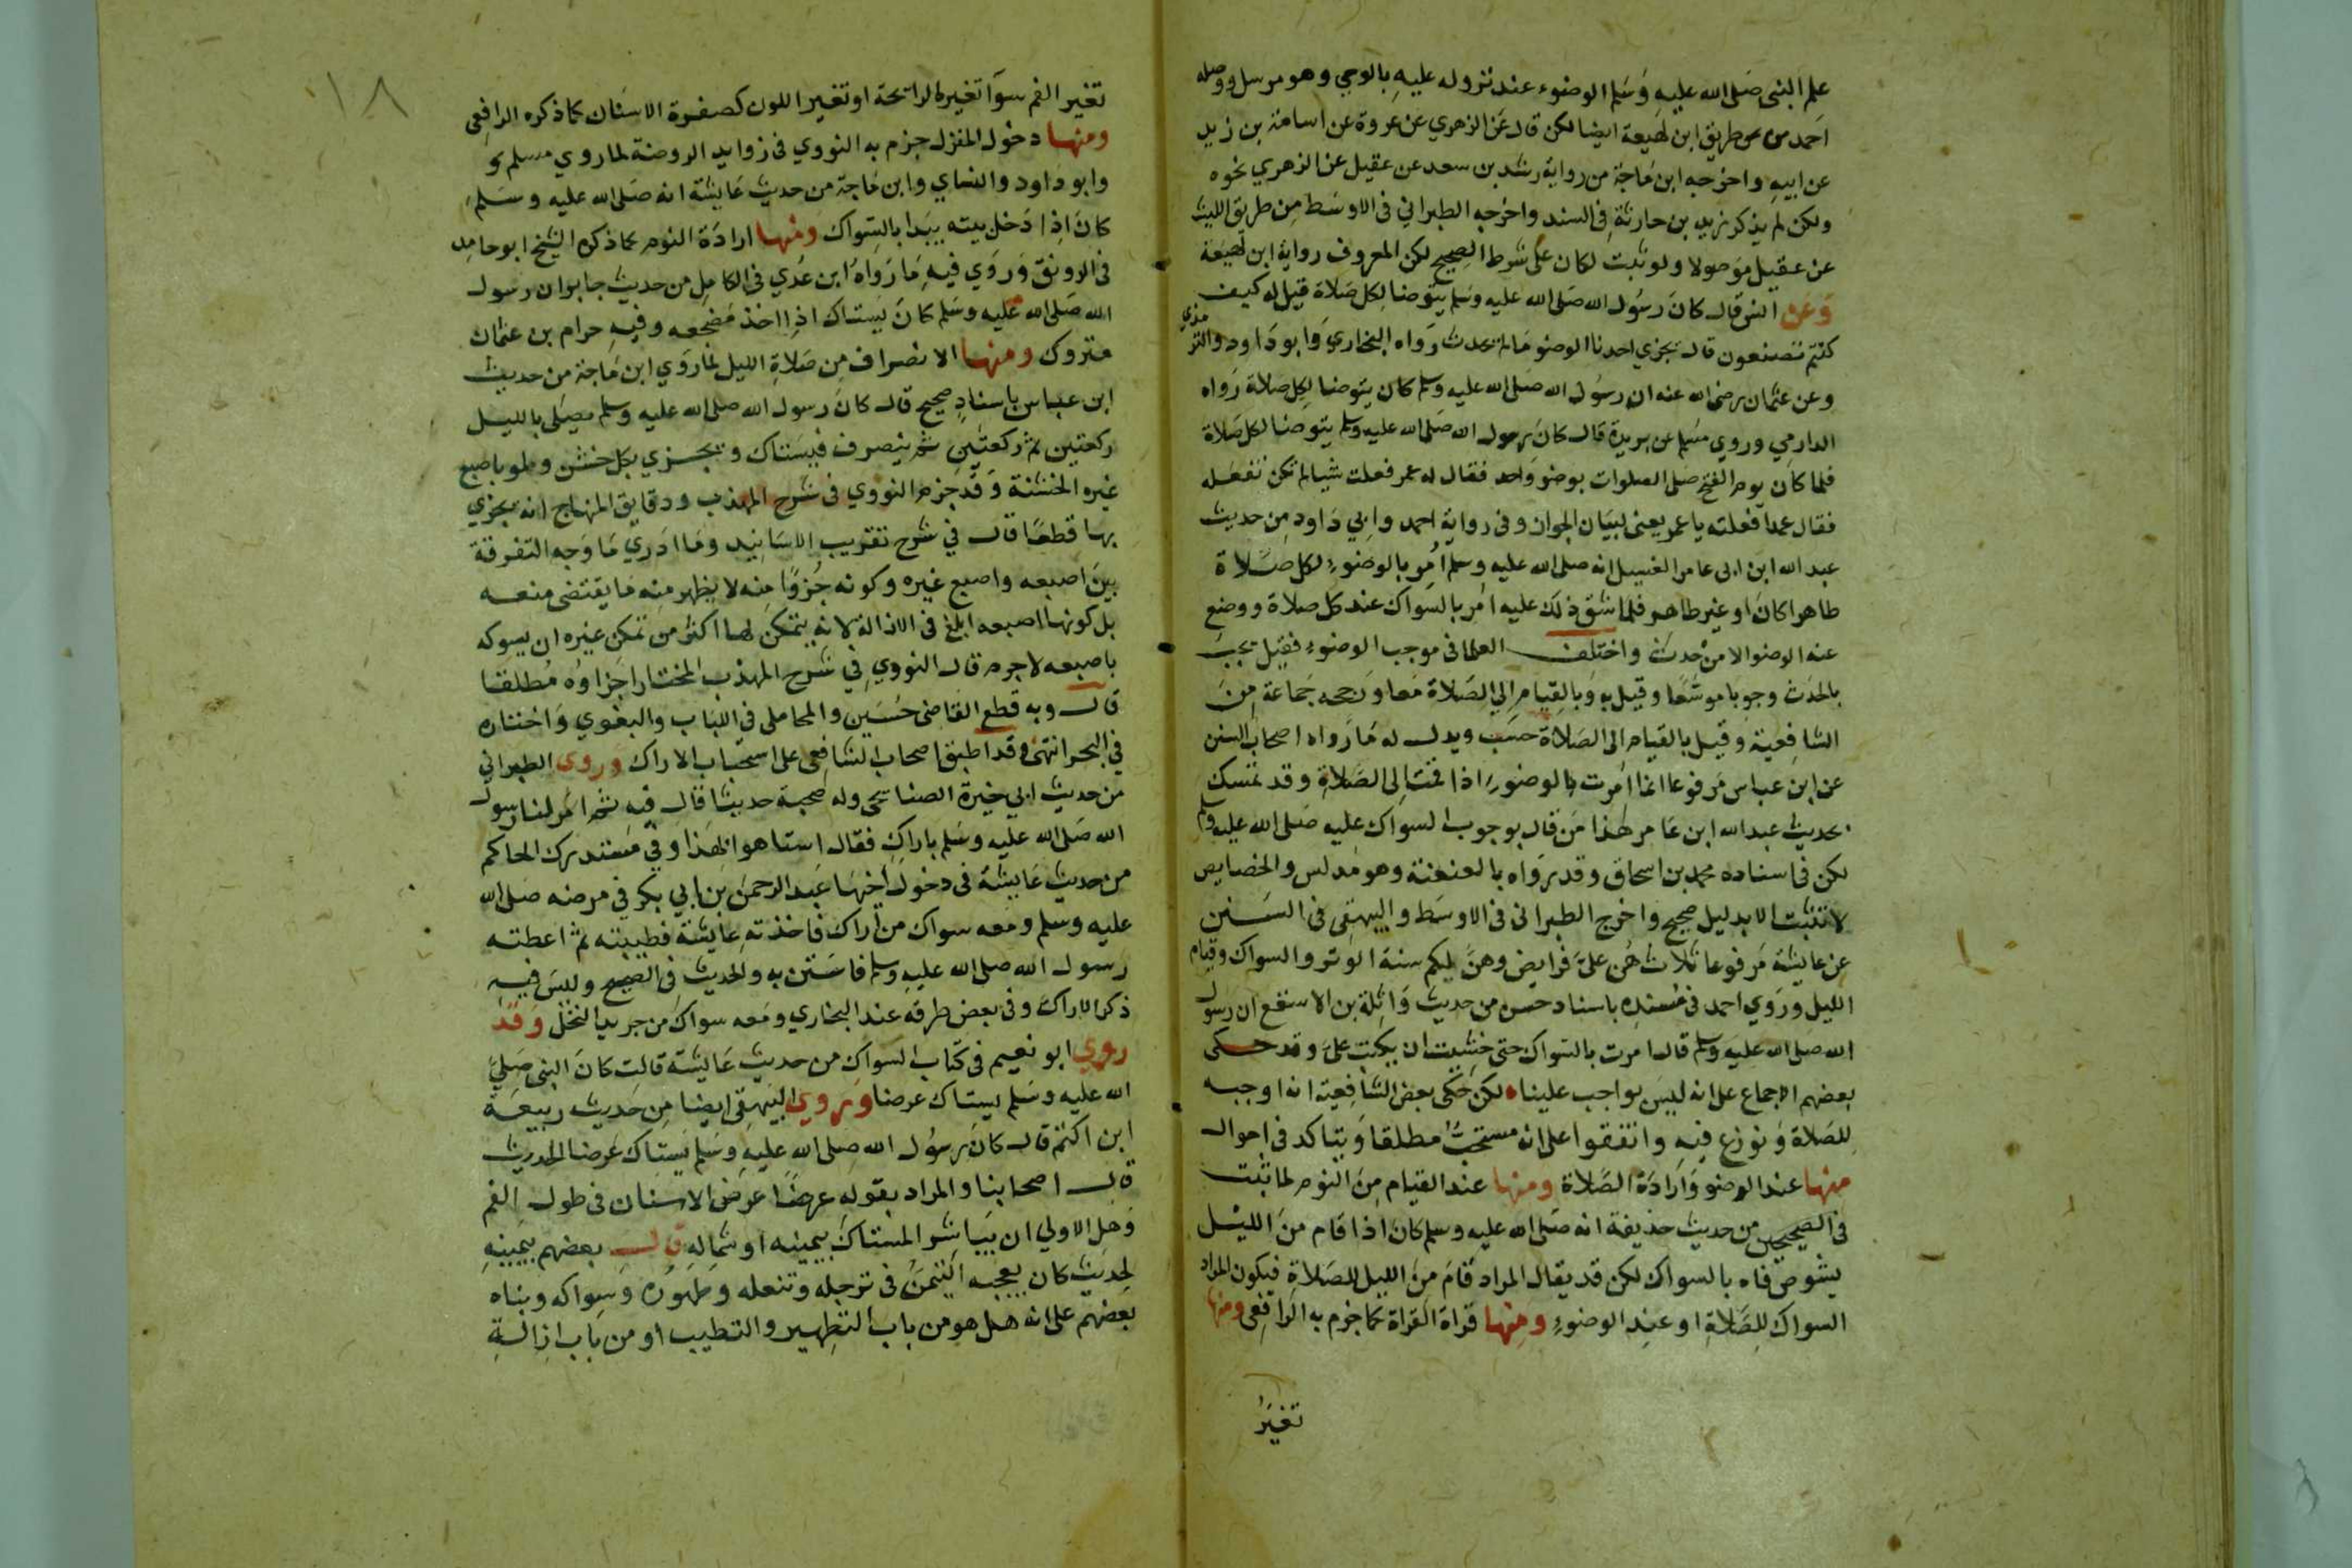 علم النبى صلى الله عليه وسلم الوضوء عند نزوله عليه بالوحي وهو مرسل ووصله
احمد من طريق ابن لهيعة ايضا لكن قال عن الزهري عن عروة عن اسامة بن زيد
عن ابيه واخرجه ابن ماجة من رواية رشد بن سعد عن عقيل عن الزهري نحوه
ولكن لم يذكر زيد بن حارثة فى السند واخرجه الطبراني فى الاوسط من طريق الليث
عن عقيل موصولا ولو ثبت لكان على شرط الصحيح لكن المعروف رواية ابن لهيعة
وعن انس قال كان رسول الله صلى الله عليه وسلم يتوضا لكل صلاة قيل له كيف
كنتم تصنعون قال يجزي احدنا الوضو ما لم يحدث رواه البخاري وابو داود والترمذي
وعن عثمان رضى الله عنه ان رسول الله صلى الله عليه وسلم كان يتوضا لكل صلاة رواه
الدارمي وروي مسلم عن بريدة قال كان رسول الله صلى الله عليه وسلم يتوضا لكل صلاة
فلما كان يوم الفتح صلى الصلوات بوضو واحد فقال له عمر فعلت شيا لم تكن تفعله
فقال عمدا فعلته يا عمر يعنى لبيان الجواز وفى رواية احمد وابي داود من حديث
عبد الله ابن ابى عامر الغسيل انه صلى الله عليه وسلم أمر بالوضوء لكل صلاة
طاهرا كان او غير طاهر فلما شق ذلك عليه امر بالسواك عند كل صلاة ووضع
عنه الوضو الا من حدث واختلف العلما فى موجب الوضوء فقيل يجب
بالحدث وجوبا موسعا وقيل به وبالقيام الى الصلاة معا ورجحه جماعة من
الشافعية وقيل بالقيام الى الصلاة حسب ويدل له ما رواه اصحاب السنن
عن ابن عباس مرفوعا انما امرت بالوضوء اذا قمت الى الصلاة وقد تمسك
بحديث عبد الله ابن عامر هذا من قال بوجوب السواك عليه صلى الله عليه وسلم
لكن فى اسناده محمد بن اسحاق وقد رواه بالعنعنة وهو مدلس والخصايص
لا تثبت الا بدليل صحيح واخرج الطبرانى فى الاوسط والبيهقى فى السنن
عن عايشة مرفوعا ثلاث هن على فرايض وهن لكم سنة الوتر والسواك وقيام
الليل وروي احمد فى مسنده باسناد حسن من حديث واثلة بن الاسقع ان رسول
الله صلى الله عليه وسلم قال امرت بالسواك حتى خشيت ان يكتب على وقد حكى
بعضهم الاجماع على انه ليس بواجب علينا لكن حكى بعض الشافعية انه اوجبه
للصلاة ونوزع فيه واتفقوا على انه مستحب مطلقا ويتاكد فى احوال
منها عند الوضو وارادة الصلاة ومنها عند القيام من النوم لما ثبت
فى الصحيحين من حديث حذيفة انه صلى الله عليه وسلم كان اذا قام من الليل
يشوص فاه بالسواك لكن قد يقال المراد قام من الليل للصلاة فيكون المراد
السواك للصلاة او عند الوضوء ومنها قراة القراة كما جزم به الرافعى ومنها
تغير
١٨
تغير الفم سوآ تغير الرايحة او تغير اللون كصفرة الاسنان كما ذكره الرافعى
ومنها دخول المنزل جزم به النووي فى زوايد الروضة لما روي مسلم و
وابو داود والنساي وابن ماجة من حديث عايشة انه صلى الله عليه وسلم
كان اذا دخل بيته يبدا بالسواك ومنها ارادة النوم كما ذكره الشيخ ابو حامد
فى الرونق وروي فيه ما رواه ابن عدي فى الكامل من حديث جابر ان رسول
الله صلى الله عليه وسلم كان يستاك اذا اخذ مضجعه وفيه حرام بن عثمان
متروك ومنها الانصراف من صلاة الليل لما روي ابن ماجة من حديث
ابن عباس باسناد صحيح قال كان رسول الله صلى الله عليه وسلم يصلى بالليل
ركعتين ثم ركعتين ثم ينصرف فيستاك ويجزي بكل خشن ولو باصبع
غيره الخشنة وقد جزم النووي فى شرح المهذب ودقايق المنهاج انه يجزي
بها قطعا قال في شرح تقريب الاسانيد وما ادري ما وجه التفرقة
بين اصبعه واصبع غيره وكونه جزوا منه لا يظهر منه ما يقتضى منعه
بل كونها اصبعه ابلغ فى الازالة لانه يتمكن لها اكثر من تمكن غيره ان يسوكه
باصبعه لا جرم قال النووي في شرح المهذب المختار اجزاوه مطلقا
قال وبه قطع القاضى حسين والمحاملى فى اللباب والبغوي واختاره
في البحر انتهى وقد اطبق اصحاب الشافعى على استحباب الاراك وروى الطبراني
من حديث ابي خيرة الصناحى وله صحبة حديثا قال فيه ثم امر لنا رسول
الله صلى الله عليه وسلم باراك فقال استاهوا بهذا وفي مستدرك الحاكم
من حديث عايشة فى دخول اخيها عبد الرحمن بن ابي بكر في مرضه صلى الله
عليه وسلم ومعه سواك من أراك فاخذته عايشة فطيبته ثم اعطته
رسول الله صلى الله عليه وسلم فاستن به والحديث فى الصحيح وليس فيه
ذكر الاراك وفى بعض طرقه عند البخاري ومعه سواك من جريد النخل وقد
روي ابو نعيم فى كتاب السواك من حديث عايشة قالت كان النبى صلى
الله عليه وسلم يستاك عرضا وروي البيهقى ايضا من حديث ربيعة
ابن اكثم قال كان رسول الله صلى الله عليه وسلم يستاك عرضا الحديث
قال اصحابنا والمراد بقوله عرضا عرض الاسنان فى طول الفم
وهل الاولي ان يباشر المستاك بيمينه او شماله قال بعضهم بيمينه
لحديث كان يعجبه التيمن فى ترجله وتنعله وطهوره وسواكه وبناه
بعضهم على انه هل هو من باب التطهير والتطيب او من باب ازالة